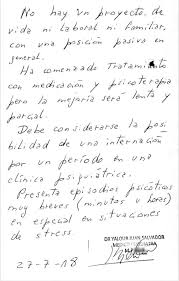 No hay un proyecto de
vida ni laboral ni familiar,
con una posición pasiva en
general.
Ha comenzado Tratamiento
con medicación y psicoterapia
pero la mejoría será lenta y
parcial.
Debe considerarse la posi
bilidad de una internación
por un período en una
clínica psiquiátrica.
Presenta episodios psicóticos
muy breves (minutos u horas)
en especial en situaciones
de stress.
DR VALOUR JUAN SALVADOR
27-7-18